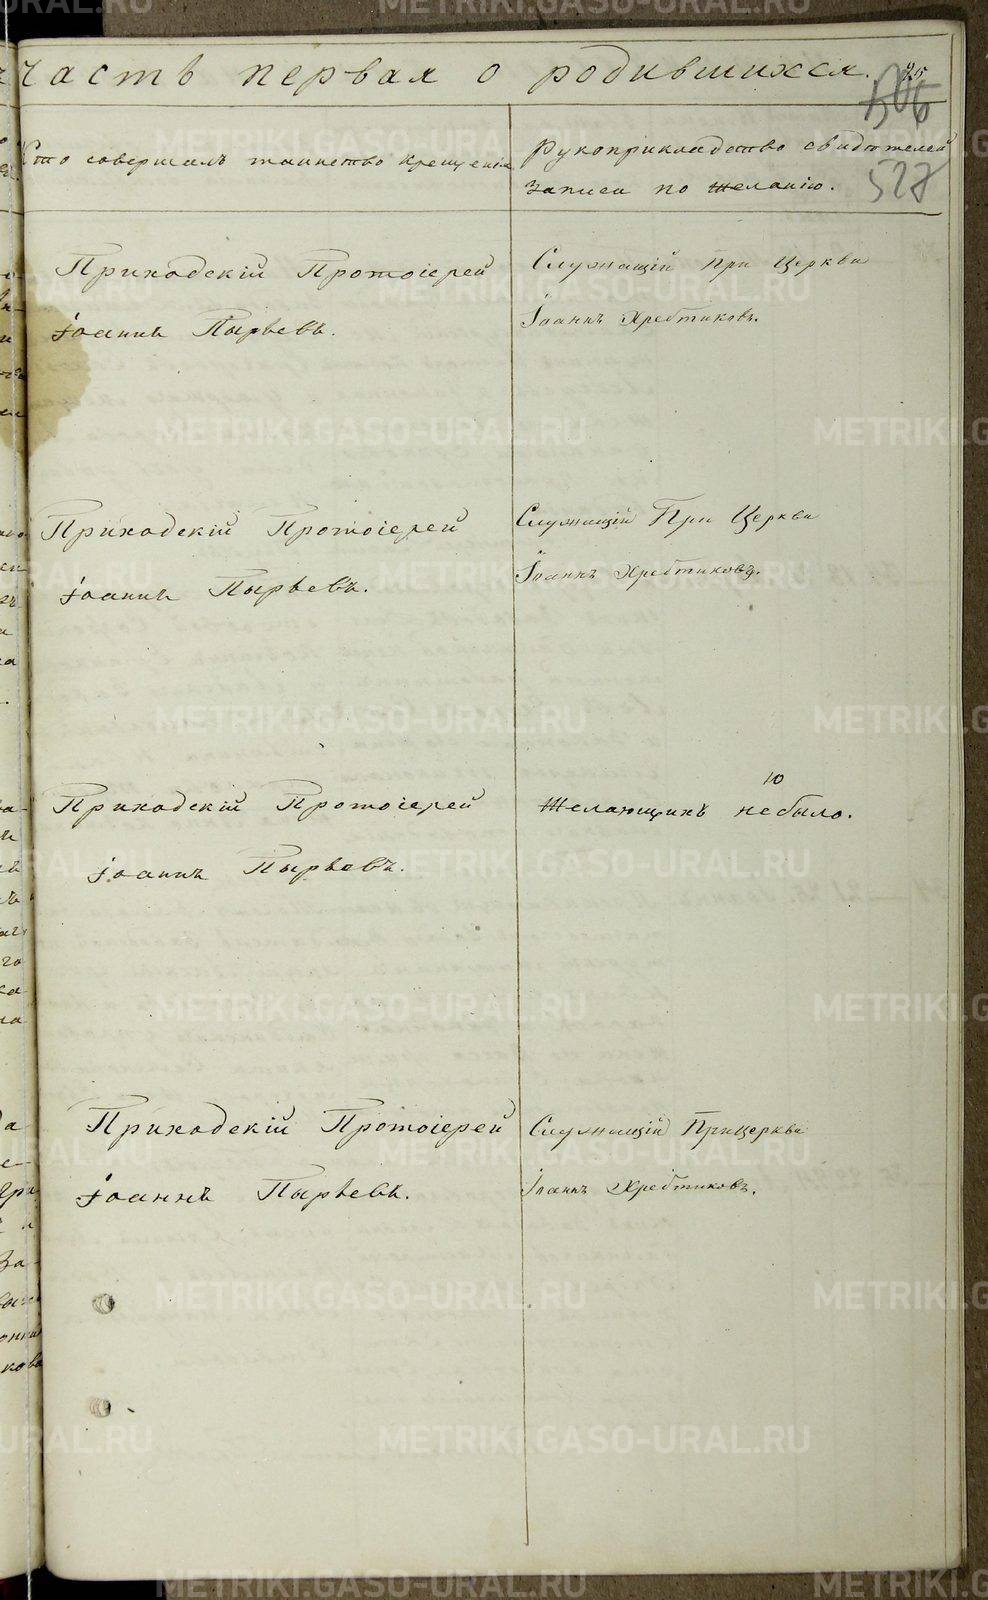 часть первая о родившихся.
95
506
527
Кто совершалъ таинство крещенія
Рукоприкладство свидѣтелей
записи по желанію.
Приходскій Протоіерей
Іоаннъ Пырьевъ.
Служащій при Церкви
Іоаннъ Хребтиковъ.
Приходскій Протоіерей
Іоаннъ Пырьевъ.
Служащій При Церкви
Іоаннъ Хребтиковъ.
Приходскій Протоіерей
Іоаннъ Пырьевъ.
Желающихъ не было.
Приходскій Протоіерей
Іоаннъ Пырьевъ.
Служащій При церкви
Іоаннъ Хребтиковъ.
METRIKI.GASO-URAL.RU